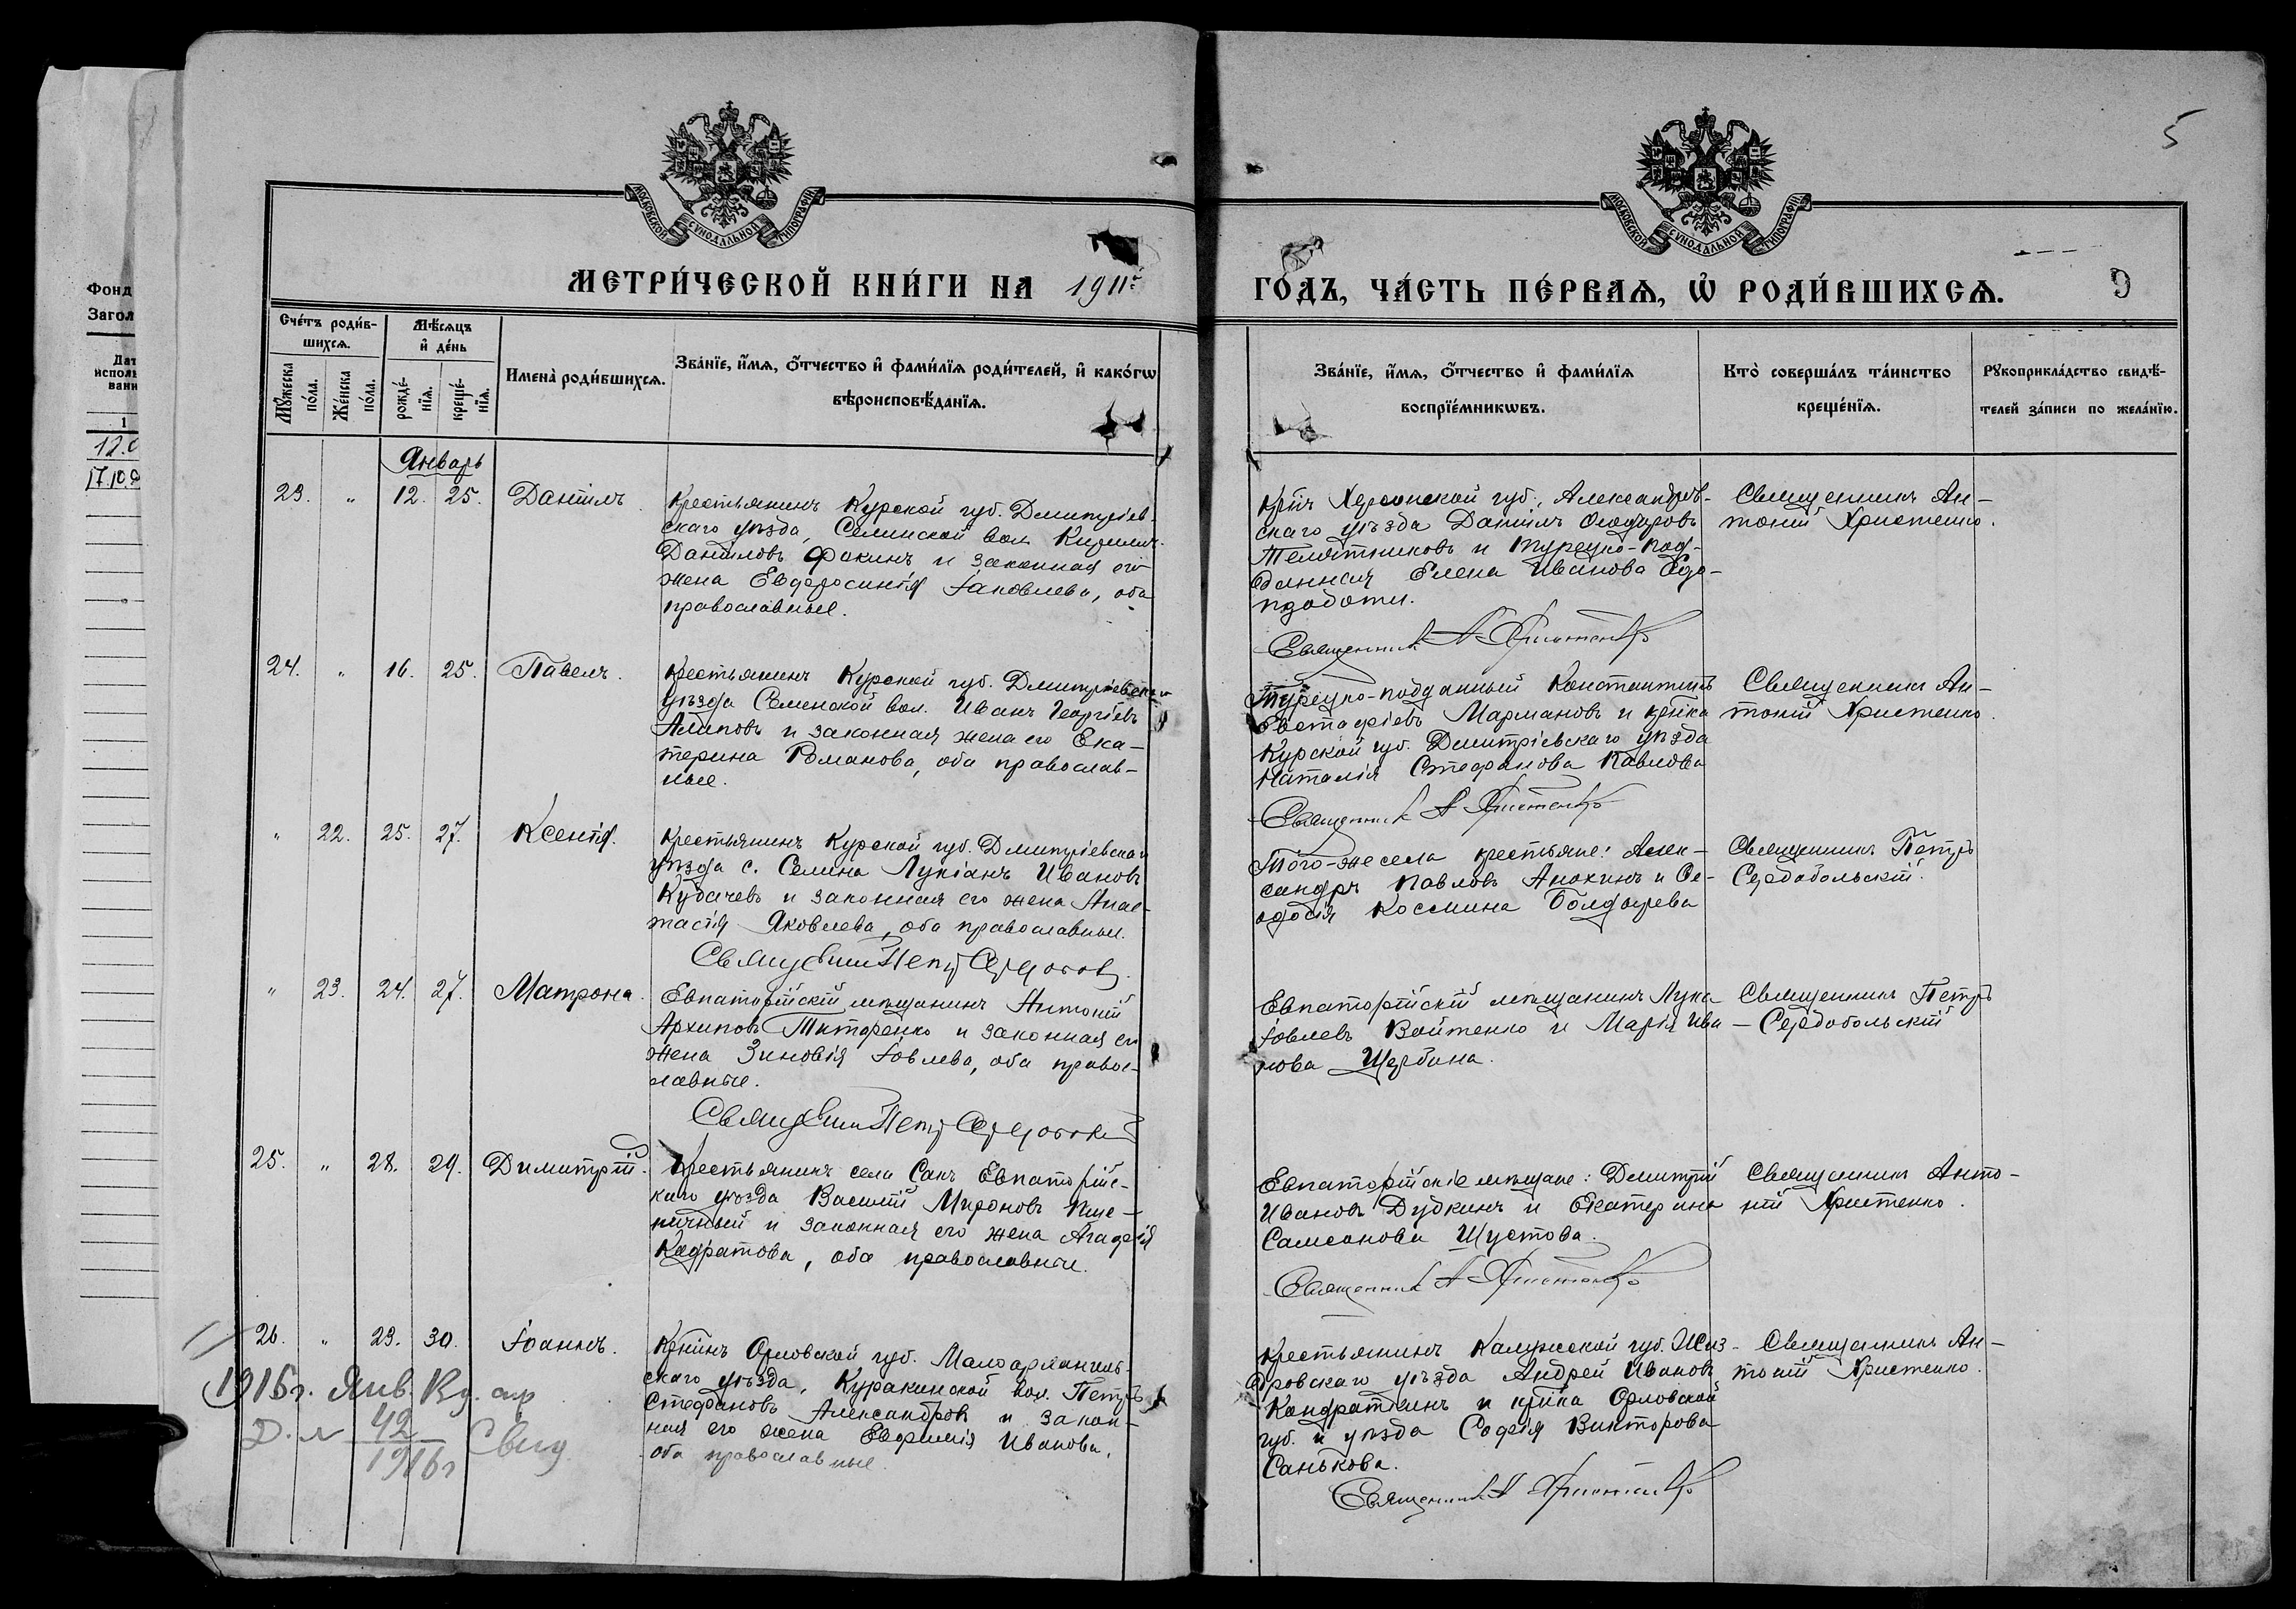 5
МОСКОВСКОЙ СУНОДАЛЬНОЙ ТИПОГРАФІИ
МОСКОВСКОЙ СУНОДАЛЬНОЙ ТИПОГРАФІИ
МЕТРИ́ЧЕСКОЙ КНИ́ГИ НА 1911 г.
ГО́ДЪ, ЧА́СТЬ ПЕ́РВАѦ, Ѡ РОДИ́ВШИХСѦ. 9
Фонд
Загол
Счетъ родив-
шихсѧ.
Мꙋжеска
пола.
Женска
пола.
Мѣсѧцъ
и день
рожде-
нїѧ.
креще-
нїѧ.
Имена родившихсѧ.
Званїе, имѧ, отчество и фамилїѧ родителей, и какогѡ
вѣроисповѣданїѧ.
Званїе, имѧ, отчество и фамилїѧ
воспрїемникѡвъ.
Кто совершалъ таинство
крещенїѧ.
Рꙋкоприкладство свидѣ-
телей записи по желанїю.
Январь
23. " 12. 25. Даніилъ
Крестьянинъ Курской губ. Дмитріев-
скаго уѣзда, Селинской вол. Кириллъ
Даниловъ Фокинъ и законная его
жена Евфросинія Іаковлева, оба
православные.
Кр-нъ Херсонской губ., Александров-
скаго уѣзда Даніилъ Ѳеодоровъ
Телятниковъ и турецко-под-
данная Елена Иванова
Священникъ А. Христенко
Священникъ Ан-
тоній Христенко.
24. " 16. 25. Павелъ.
Крестьянинъ Курской губ. Дмитріевскаго
уѣзда Селинской вол. Иванъ Георгіевъ
Алиповъ и законная жена его Ека-
терина Романова, оба православ-
ные.
Турецко-подданный Константинъ
Евстафіевъ Мармановъ и кр-нка
Курской губ. Дмитріевскаго уѣзда
Наталія Стефанова Павлова
Священникъ А. Христенко
Священникъ Ан-
тоній Христенко.
" 22. 25. 27. Ксенія.
Крестьянинъ Курской губ. Дмитріевскаго
уѣзда с. Селина Лукіанъ Ивановъ
Кубачевъ и законная его жена Анас-
тасія Яковлева, оба православные.
Священникъ Петръ Сердобол.
Того-же села крестьяне: Алек-
сандръ Павловъ Анохинъ и Ѳе-
одосія Космина Болдырева
Священникъ Петръ
Сердобольскій.
" 23. 24. 27. Матрона.
Евпаторійскій мѣщанинъ Антоній
Архиповъ Титоренко и законная его
жена Зиновія Іовлева, оба правос-
лавные.
Священникъ Петръ Сердобольскій
Евпаторійскій мѣщанинъ Лука
Іовлевъ Войтенко и Марія Ива-
нова Щербина.
Священникъ Петръ
Сердобольскій
25. " 28. 29. Димитрій.
Крестьянинъ села Сакъ Евпаторійс-
каго уѣзда Василій Мироновъ Пше-
ничный и законная его жена Агафія
Кодратова, оба православные.
Евпаторійскіе мѣщане: Дмитрій
Ивановъ Дудкинъ и Екатерина
Самсонова Шустова.
Священникъ А. Христенко
Священникъ Анто-
ній Христенко.
26. " 23. 30. Іоаннъ.
Кр-нинъ Орловской губ. Малоархангель-
скаго уѣзда, Куракинской вол. Петръ
Стефановъ Александровъ и закон-
ная его жена Евфимія Иванова,
оба православные.
Крестьянинъ Калужской губ. Жиз-
дровскаго уѣзда Андрей Ивановъ
Кондратікинъ и кр-нка Орловской
губ. и уѣзда Софія Викторова
Санькова.
Священникъ А. Христенко
Священникъ Ан-
тоній Христенко.
1916 г. Янв.
42
1916 г